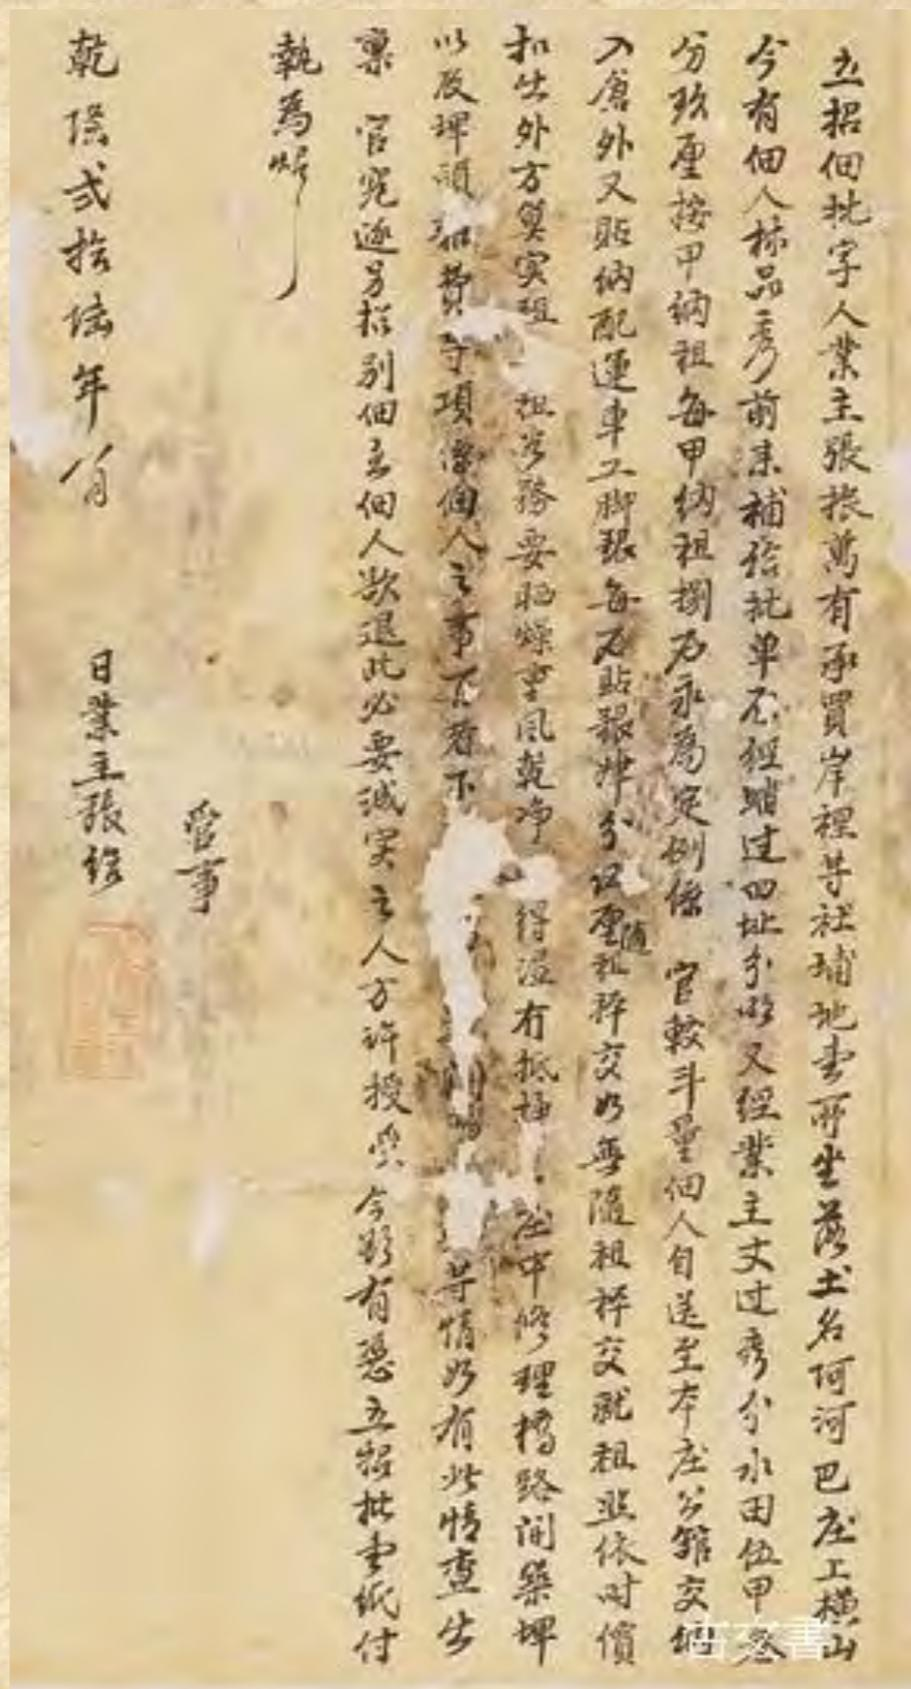 立招佃批字人業主張振萬有承買岸裡等社埔地壹所坐落土名阿河巴庄工橫山
今有佃人林品秀前來補給批單不經踏过四址分明又經業主丈过秀分水田伍甲叁
分玖厘按甲納租每甲納租捌石永為定例係 官較斗量佃人自送至本庄公館交納
入倉外又貼納配運車工脚銀每石貼銀肆分 厘隨租粹交如無隨租粹交就租照依时價
扣出外方算实租 租谷務要晒燥重風乾净 得湿冇抵 庄中修理橋路開築埤
以及埤頭 費等項係佃人之事 不 等情如有此情查出
稟 官究逐另招別佃主佃人欲退此必要诚实之人方许授受今欲有憑立招批壹纸付
執為炤
管事
乾隆弍拾陆年八月 日業主張給